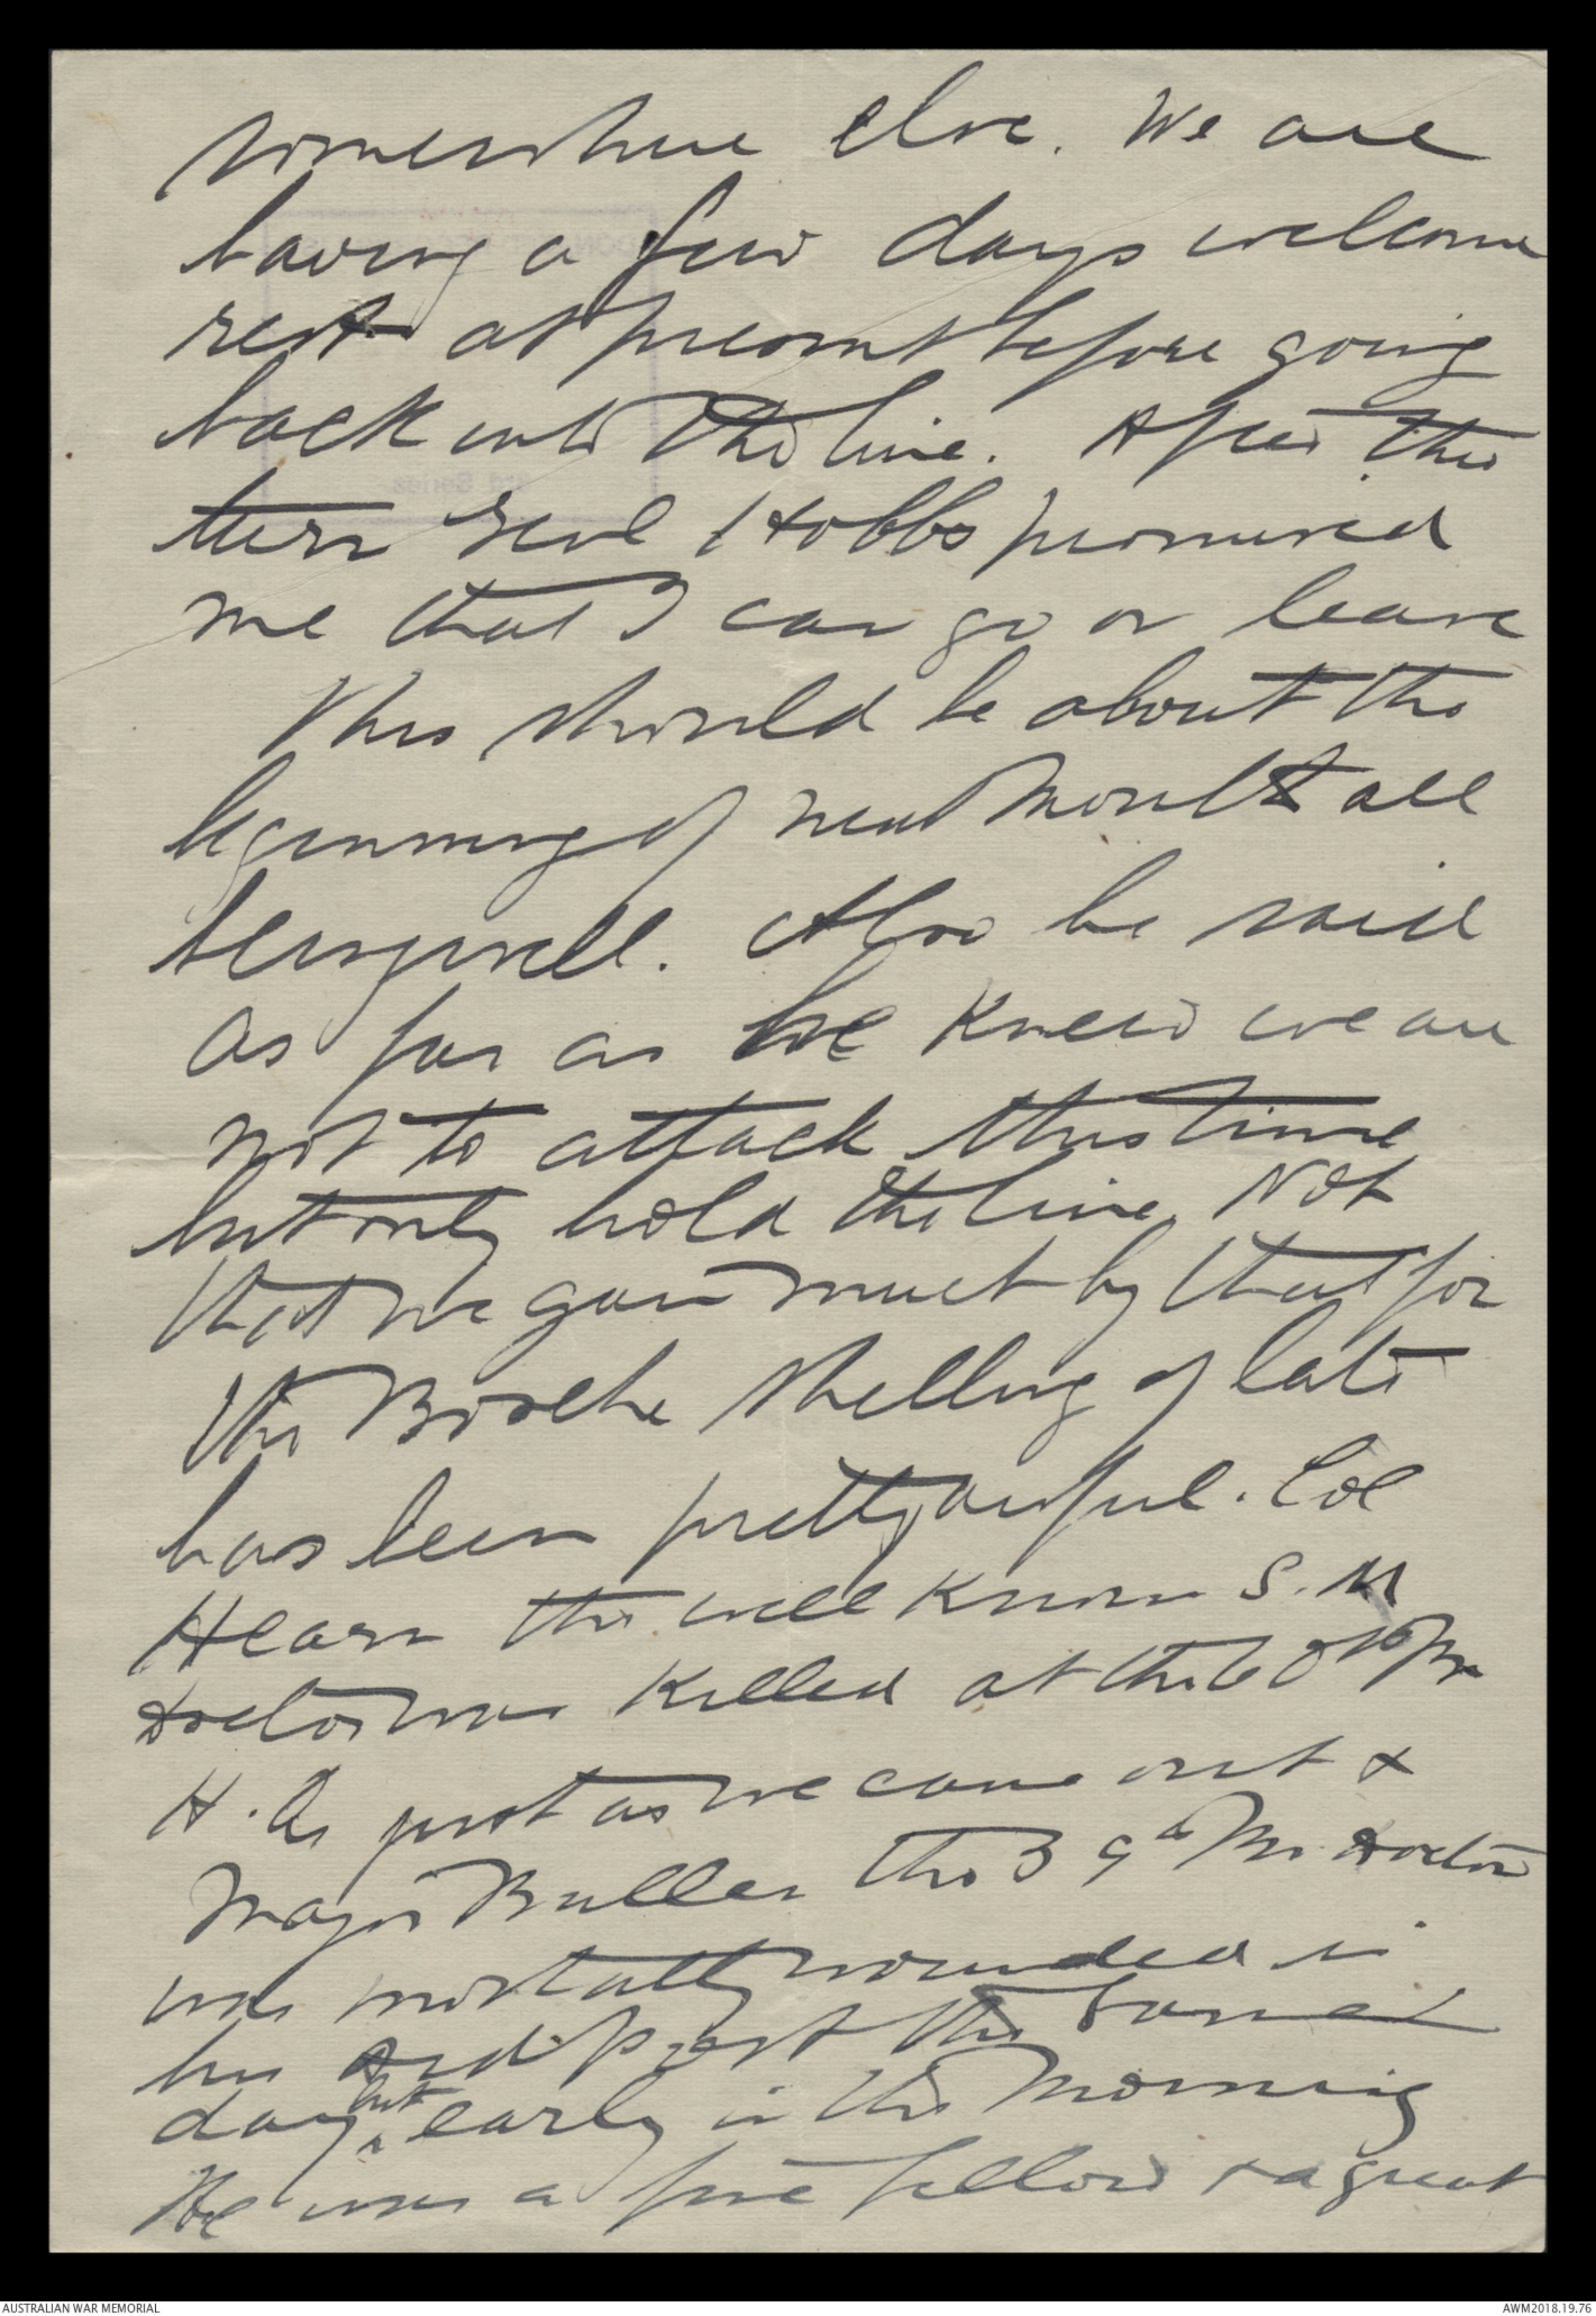 somewhere else. We are
having a few days welcome
rest at present before going
back into the line. After this
turn Genl Hobbs promised
me that I can go on leave
This should be about the
beginning of next month all
being well. Also he said
as far as he knew we are
not to attack this time
but only hold the line. Not
that we gain much by that for
the Bosche shelling of late
has been pretty awful. Col
Hearn the well known S. M
doctor was killed at the
H. Qs just as we came out &
Major Buller the 39th Bn doctor
was mortally wounded in
his aid post the same
day but early in the morning
He was a fine fellow & a great
AUSTRALIAN WAR MEMORIAL
AWM2018.19.76